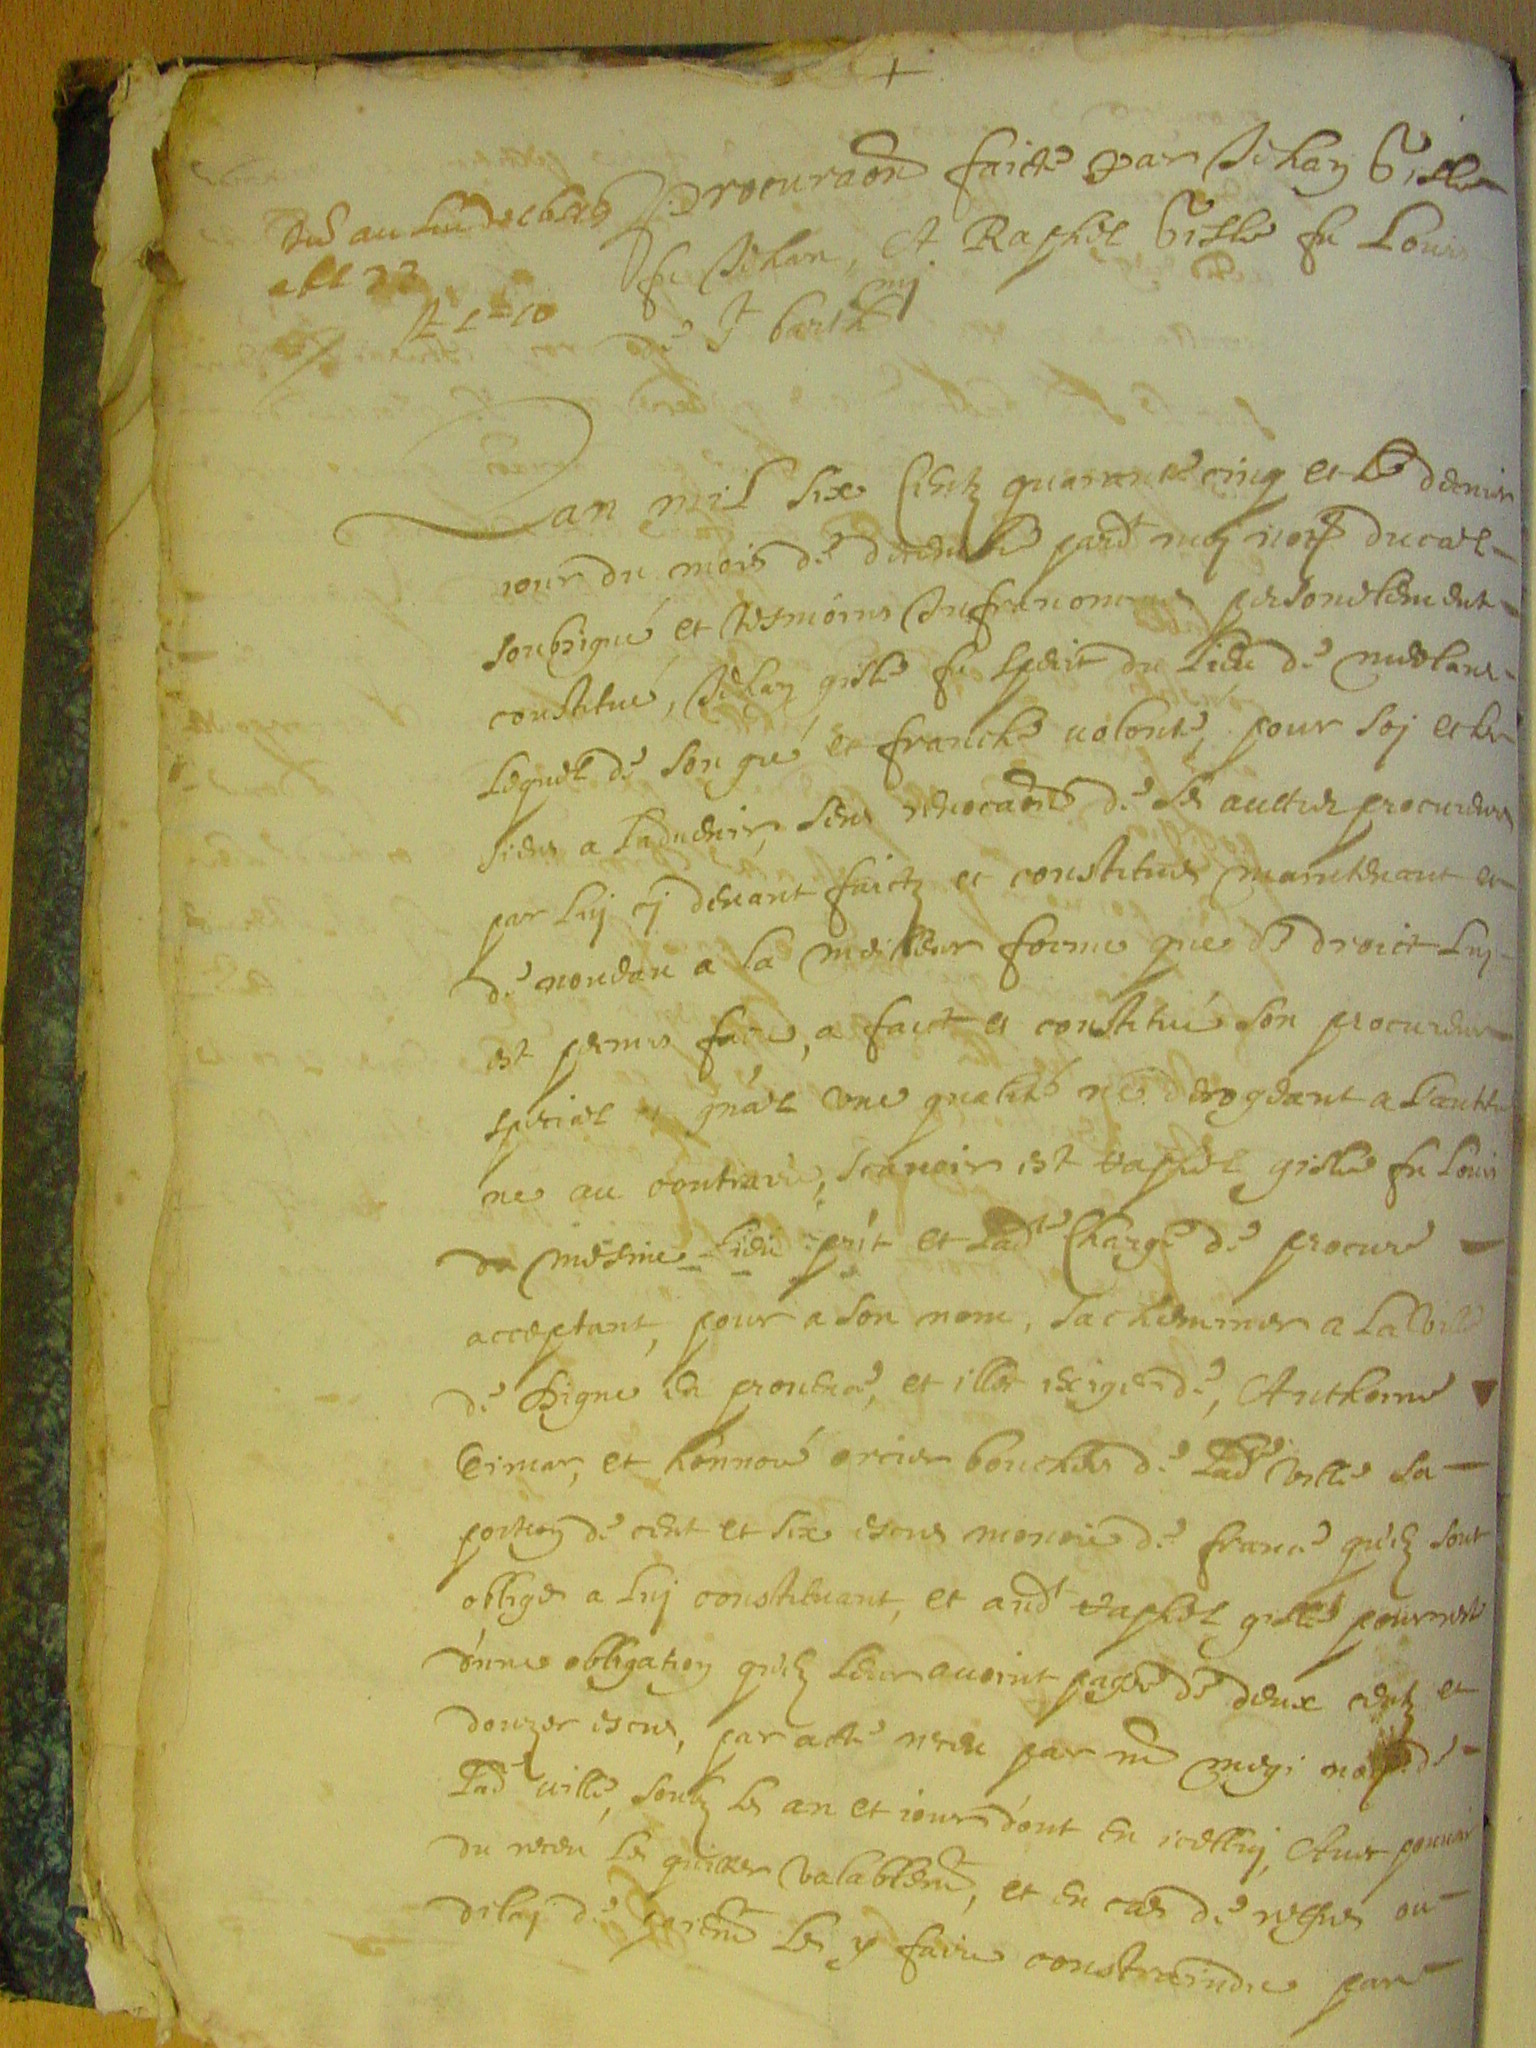 +
Procuraon faicte par Jehan Gislle
fu Jehan, et Raphel Gislle fu Louis
de St barthmy
Lan mil six Centz quarante cinq et le dernier
iour du mois de decembre pard moy notre ducal
soubsigné et tesmoins Infranommes personelement
constitué, Jehan gislle fu sperit du lieu de meolans
Lequel de son gré et franche volonté, pour soy et les
siens a l'advenir, sens revocaon de ses aultres procureurs
par luy cy devant faictz et constitues maintenant et
de nouveau a la meilleur forme que de droict luy
est permis faire, a faict et constitué son procureur
special et gnal une qualité ne derogeant a l'aultre
ne au contraire, scavoir est raphel gislle fu Louis
du mesme lieu pnt et ladte Charge de procure
acceptant, pour a son nom, sachemmer a la ville
de digne en provence, et illec exiger de, Anthoine
Eimar, et honnoré orcier bouchers de ladte ville sa
portion de cent et six escus monoie de france qu'ilz sont
obliges a luy constituant, et aud raphel gislle pour reste
d'une obligation qu'ilz leur avoint pagée de deux centz et
douzer escus, par acte receu par me megi notre de
ladte ville, soubz les an et iour dont en icelluy, Avec pouvoir
du receu les quitter valablemt, et en cas de reffus ou
delay de paiemt les y faire constraindre par